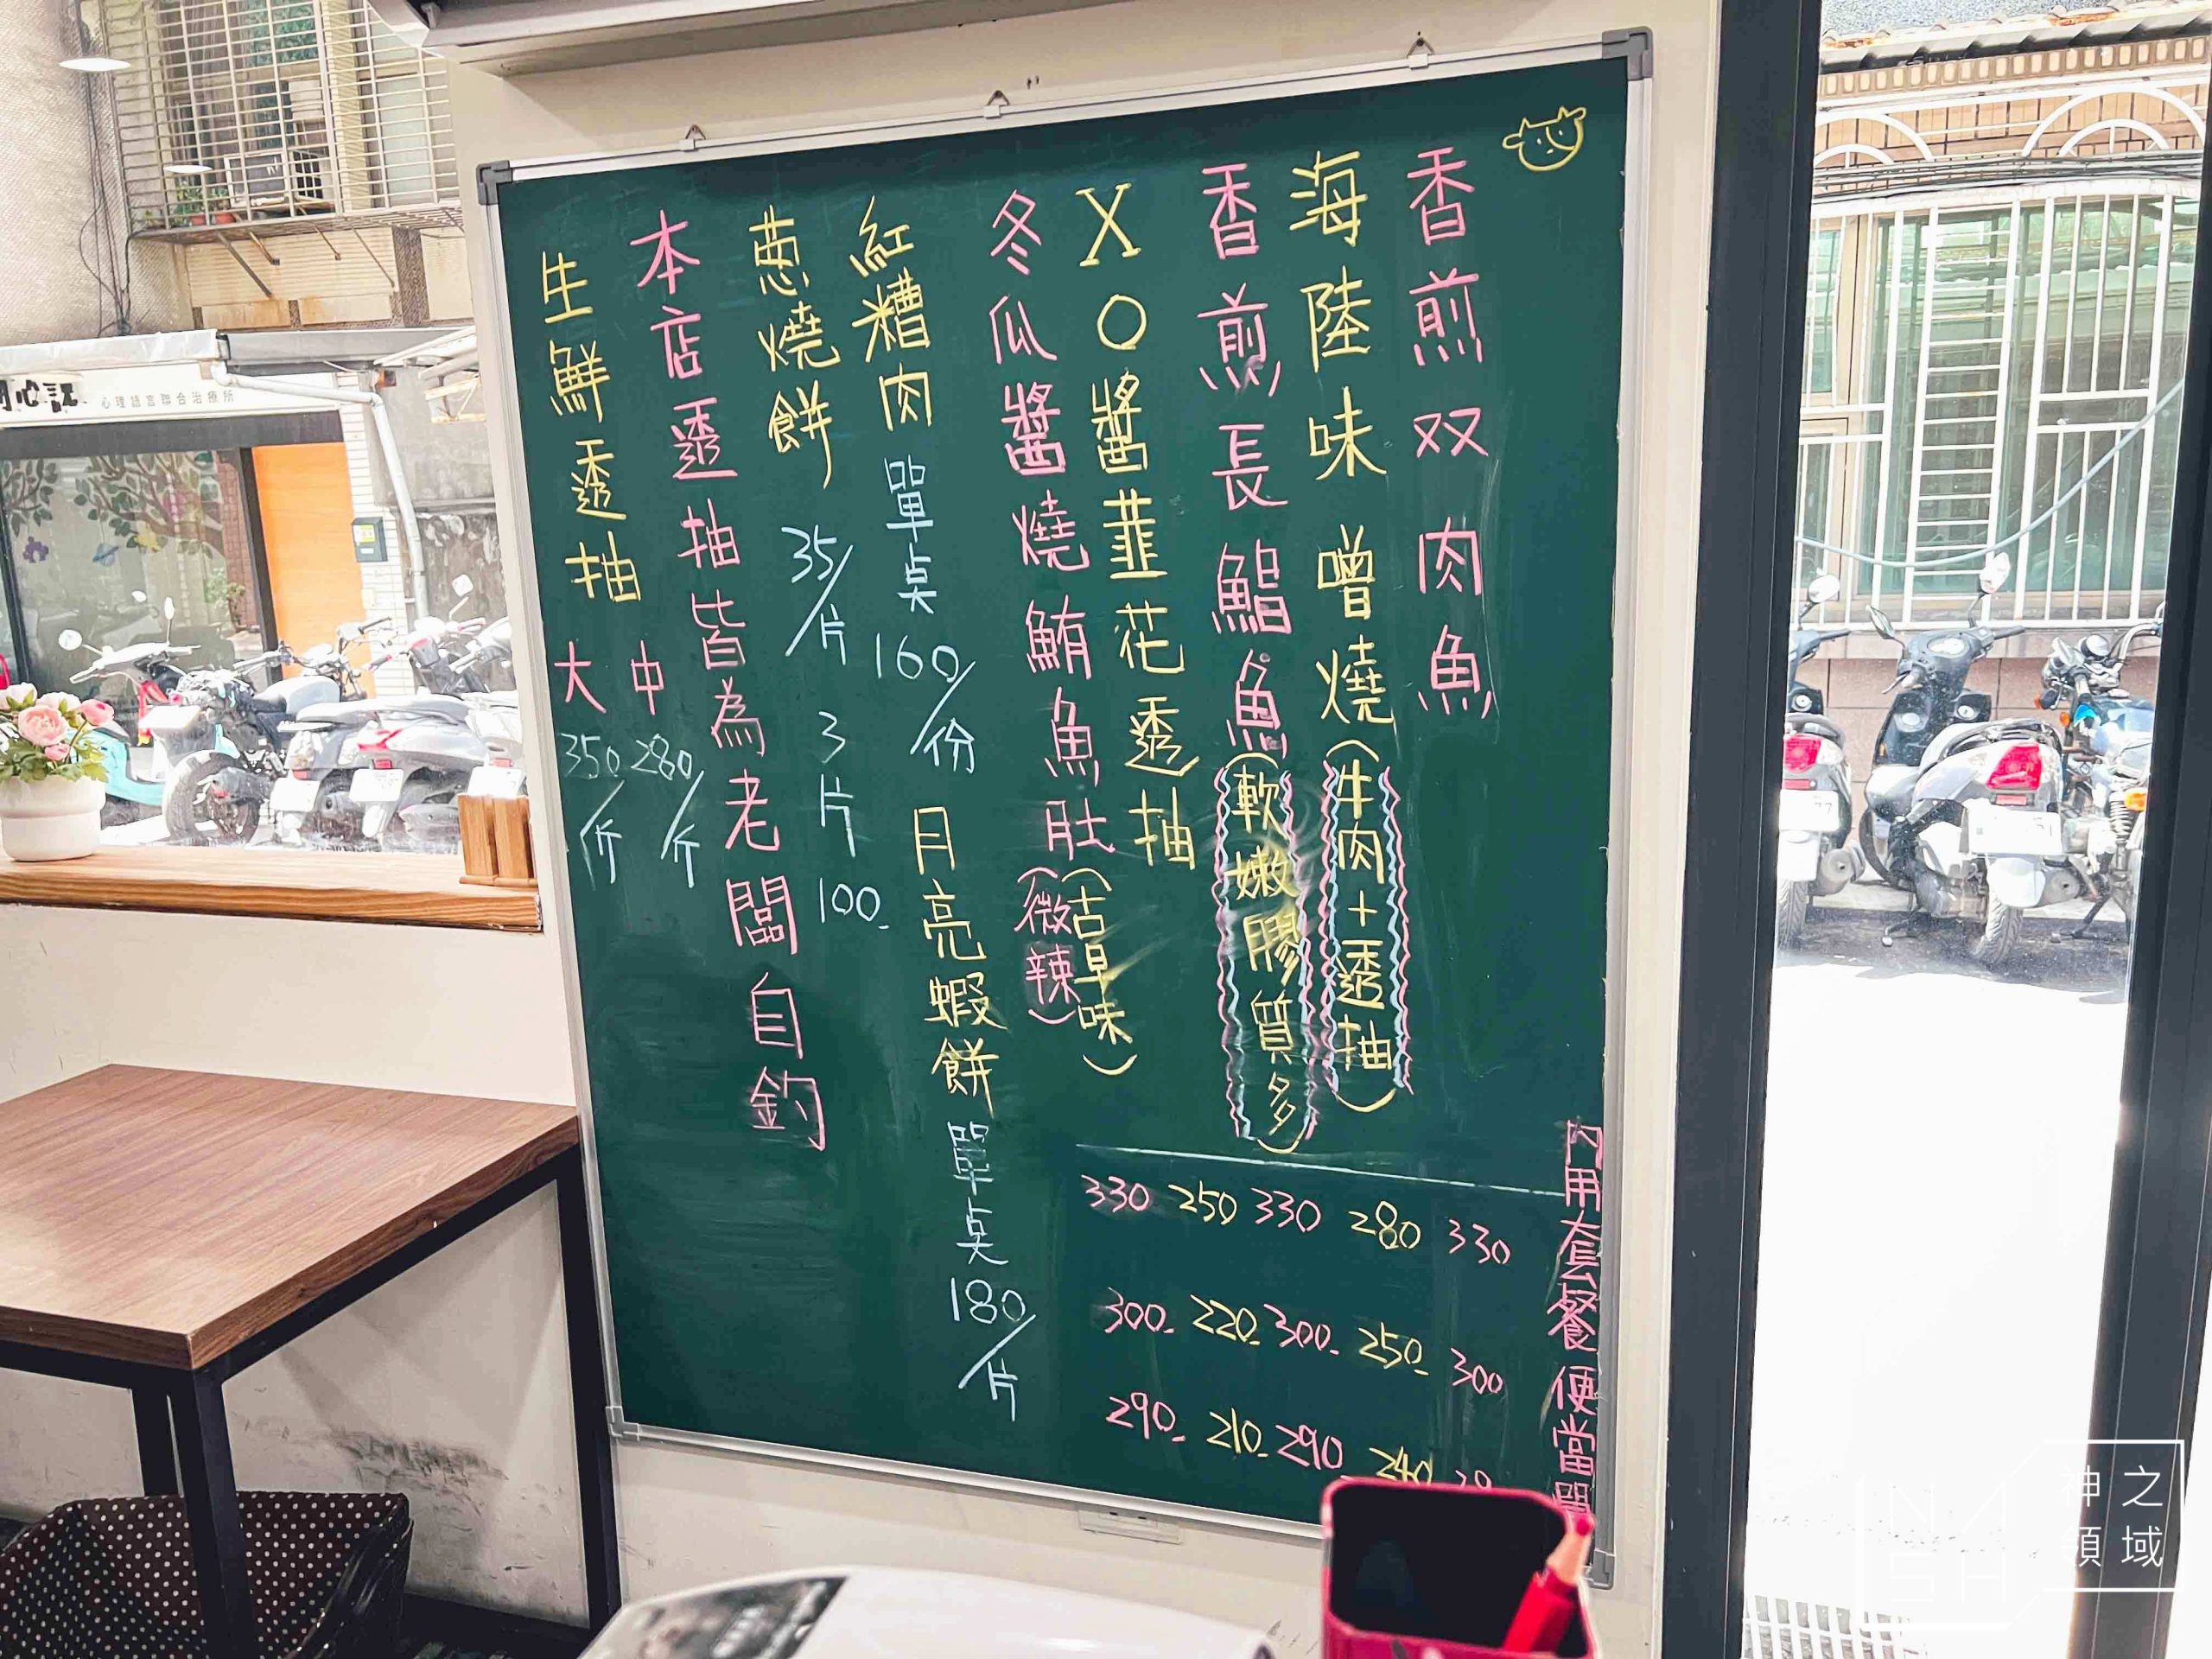 香煎双肉魚
海陸味噌燒(牛肉+透抽)
香煎長鯧魚(軟嫩膠質多)
XO醬韮花透抽(古早味)
冬瓜醬燒鮪魚肚(微辣)
內用套餐便當單
330 280 330 250 330
300 250- 300- 220- 300-
240 290 210- 290-
紅糟肉 單点160/份
月亮蝦餅 單点180/片
蔥燒餅 35/片 3片100-
本店透抽皆為老闆自釣
生鮮透抽
中280/斤
大350/斤
心理語言聯合治療所
神之領域